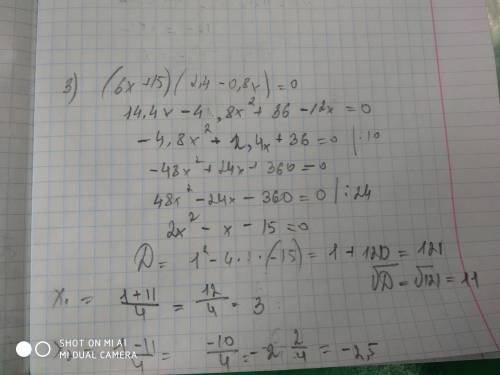 3) (6x+15)(2,4-0,8x)=0
14,4x-4,8x²+36-12x=0
-4,8x²+2,4x+36=0 |·10
-48x²+24x+360=0
48x²-24x-360=0 |:24
2x²-x-15=0
D= 1²-4·2·(-15)=1+120=121
√D=√121=11
X₁ = 1+11/4 = 12/4 = 3
-11/4 = -10/4 = -2 2/4 = -2,5
SHOT ON MI A1
MI DUAL CAMERA